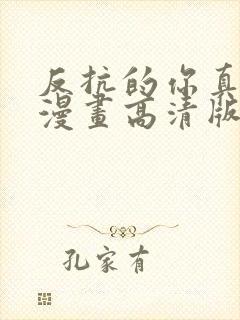 反抗的你真
漫畫高清版
孔家有